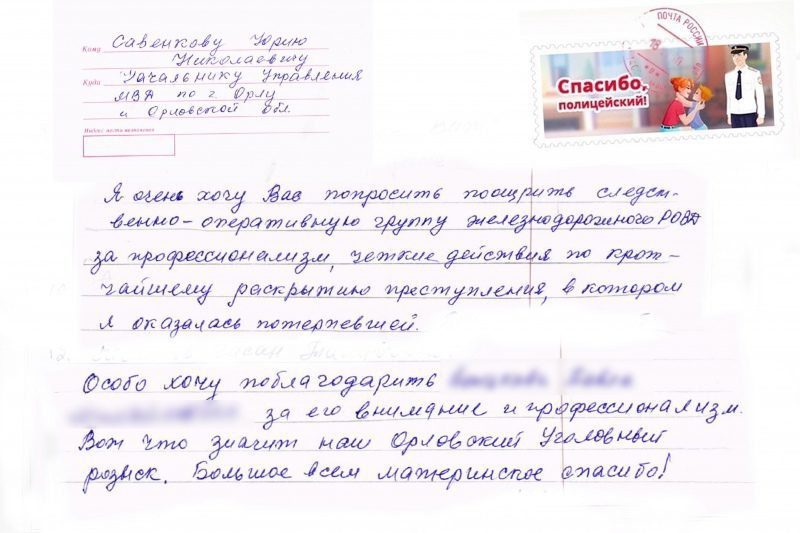 Кому Савенкову Юрию
Николаевичу
Куда Начальнику Управления
МВД по г. Орлу
и Орловской обл.
Индекс места назначения
ПОЧТА РОССИИ
Спасибо,
полицейский!
Я очень хочу Вас попросить поощрить следст-
венно-оперативную группу железнодорожного РОВД
за профессионализм, четкие действия по крот-
чайшему раскрытию преступления, в котором
я оказалась потерпевшей.
Особо хочу поблагодарить
за его внимание и профессионализм.
Вот что значит наш Орловский Уголовный
розыск. Большое всем материнское спасибо!